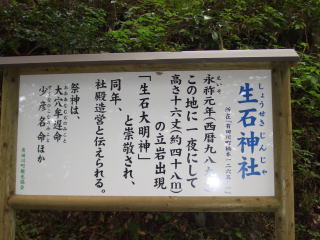 しょうせきじんじゃ
生石神社
所在(有田川町楠本一二六五)
永祚元年(西暦九八九)
この地に一夜にして
高さ十六丈(約四十八m)
の立岩出現
「生石大明神」
と崇敬され、
同年、
社殿造営と伝えられる。
祭神は、
大穴牟遅命
少彦名命ほか
有田川町観光協会